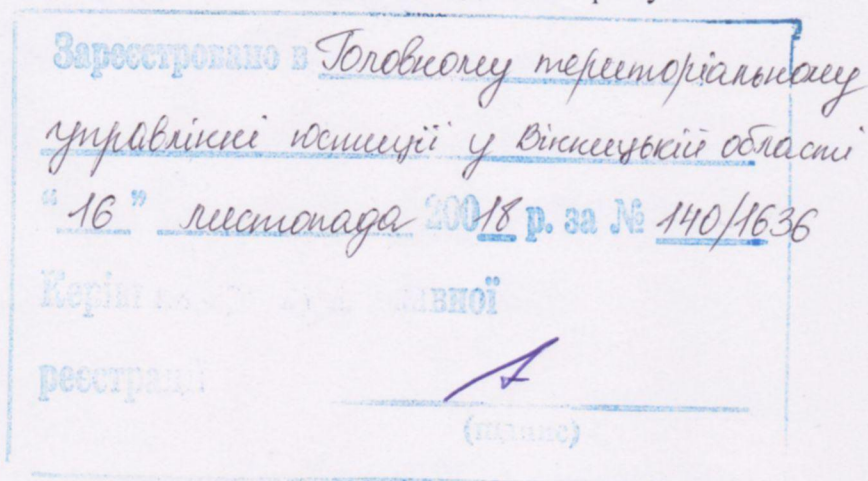 Зареєстровано в Головному територіальному
управлінні юстиції у Вінницькій області
“16” листопада 20018 р. за № 140/1636
реєстрації
(підпис)